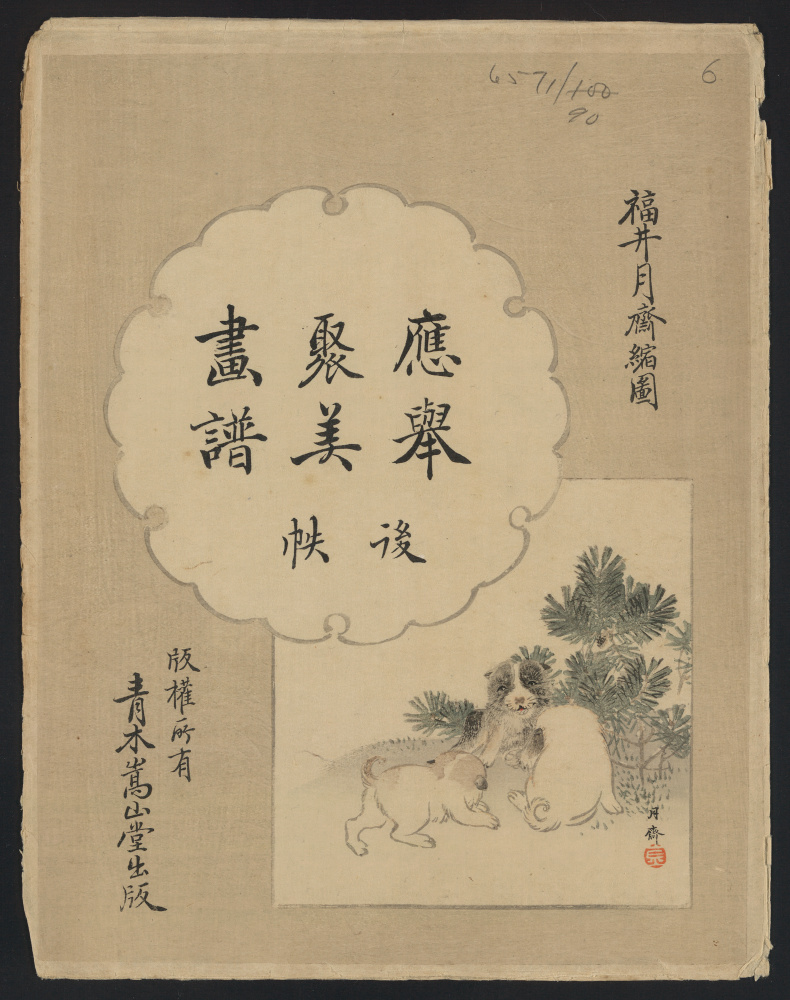 6571/100
90
6
福井月齋縮圖
應舉
聚美
畫譜
後
帙
版權所有
青木嵩山堂出版
月齋